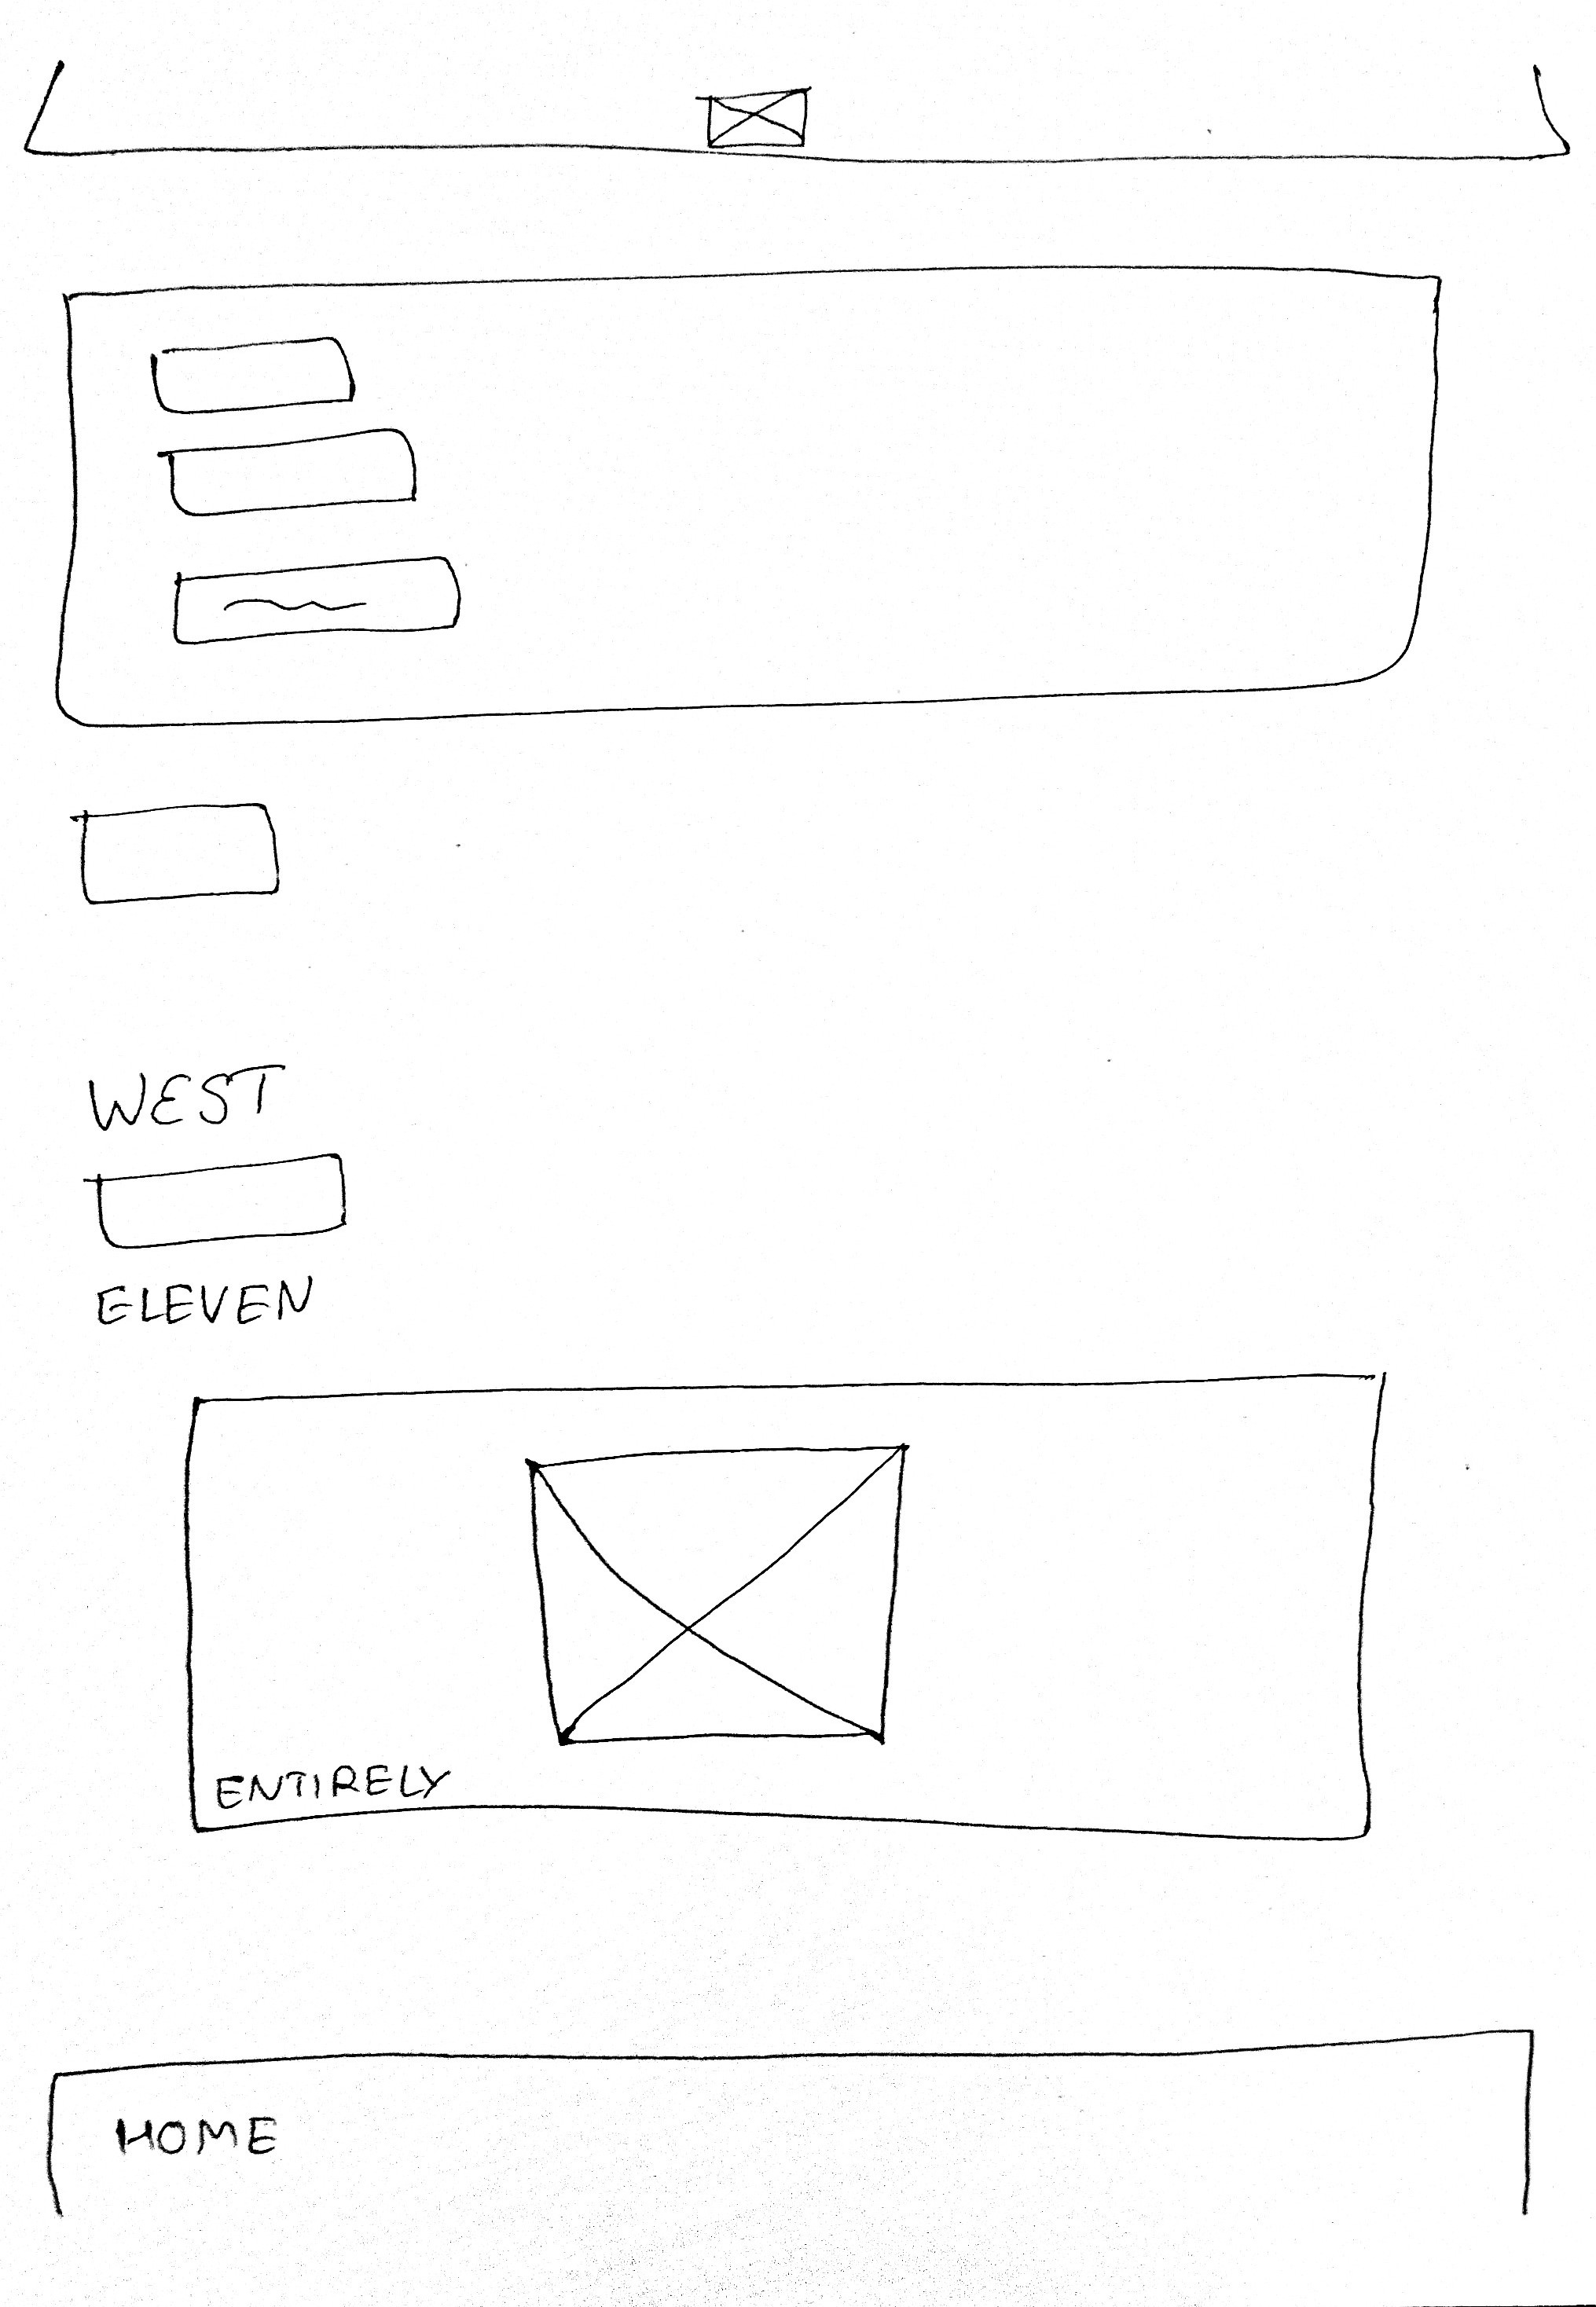 WEST
ELEVEN
ENTIRELY
HOME